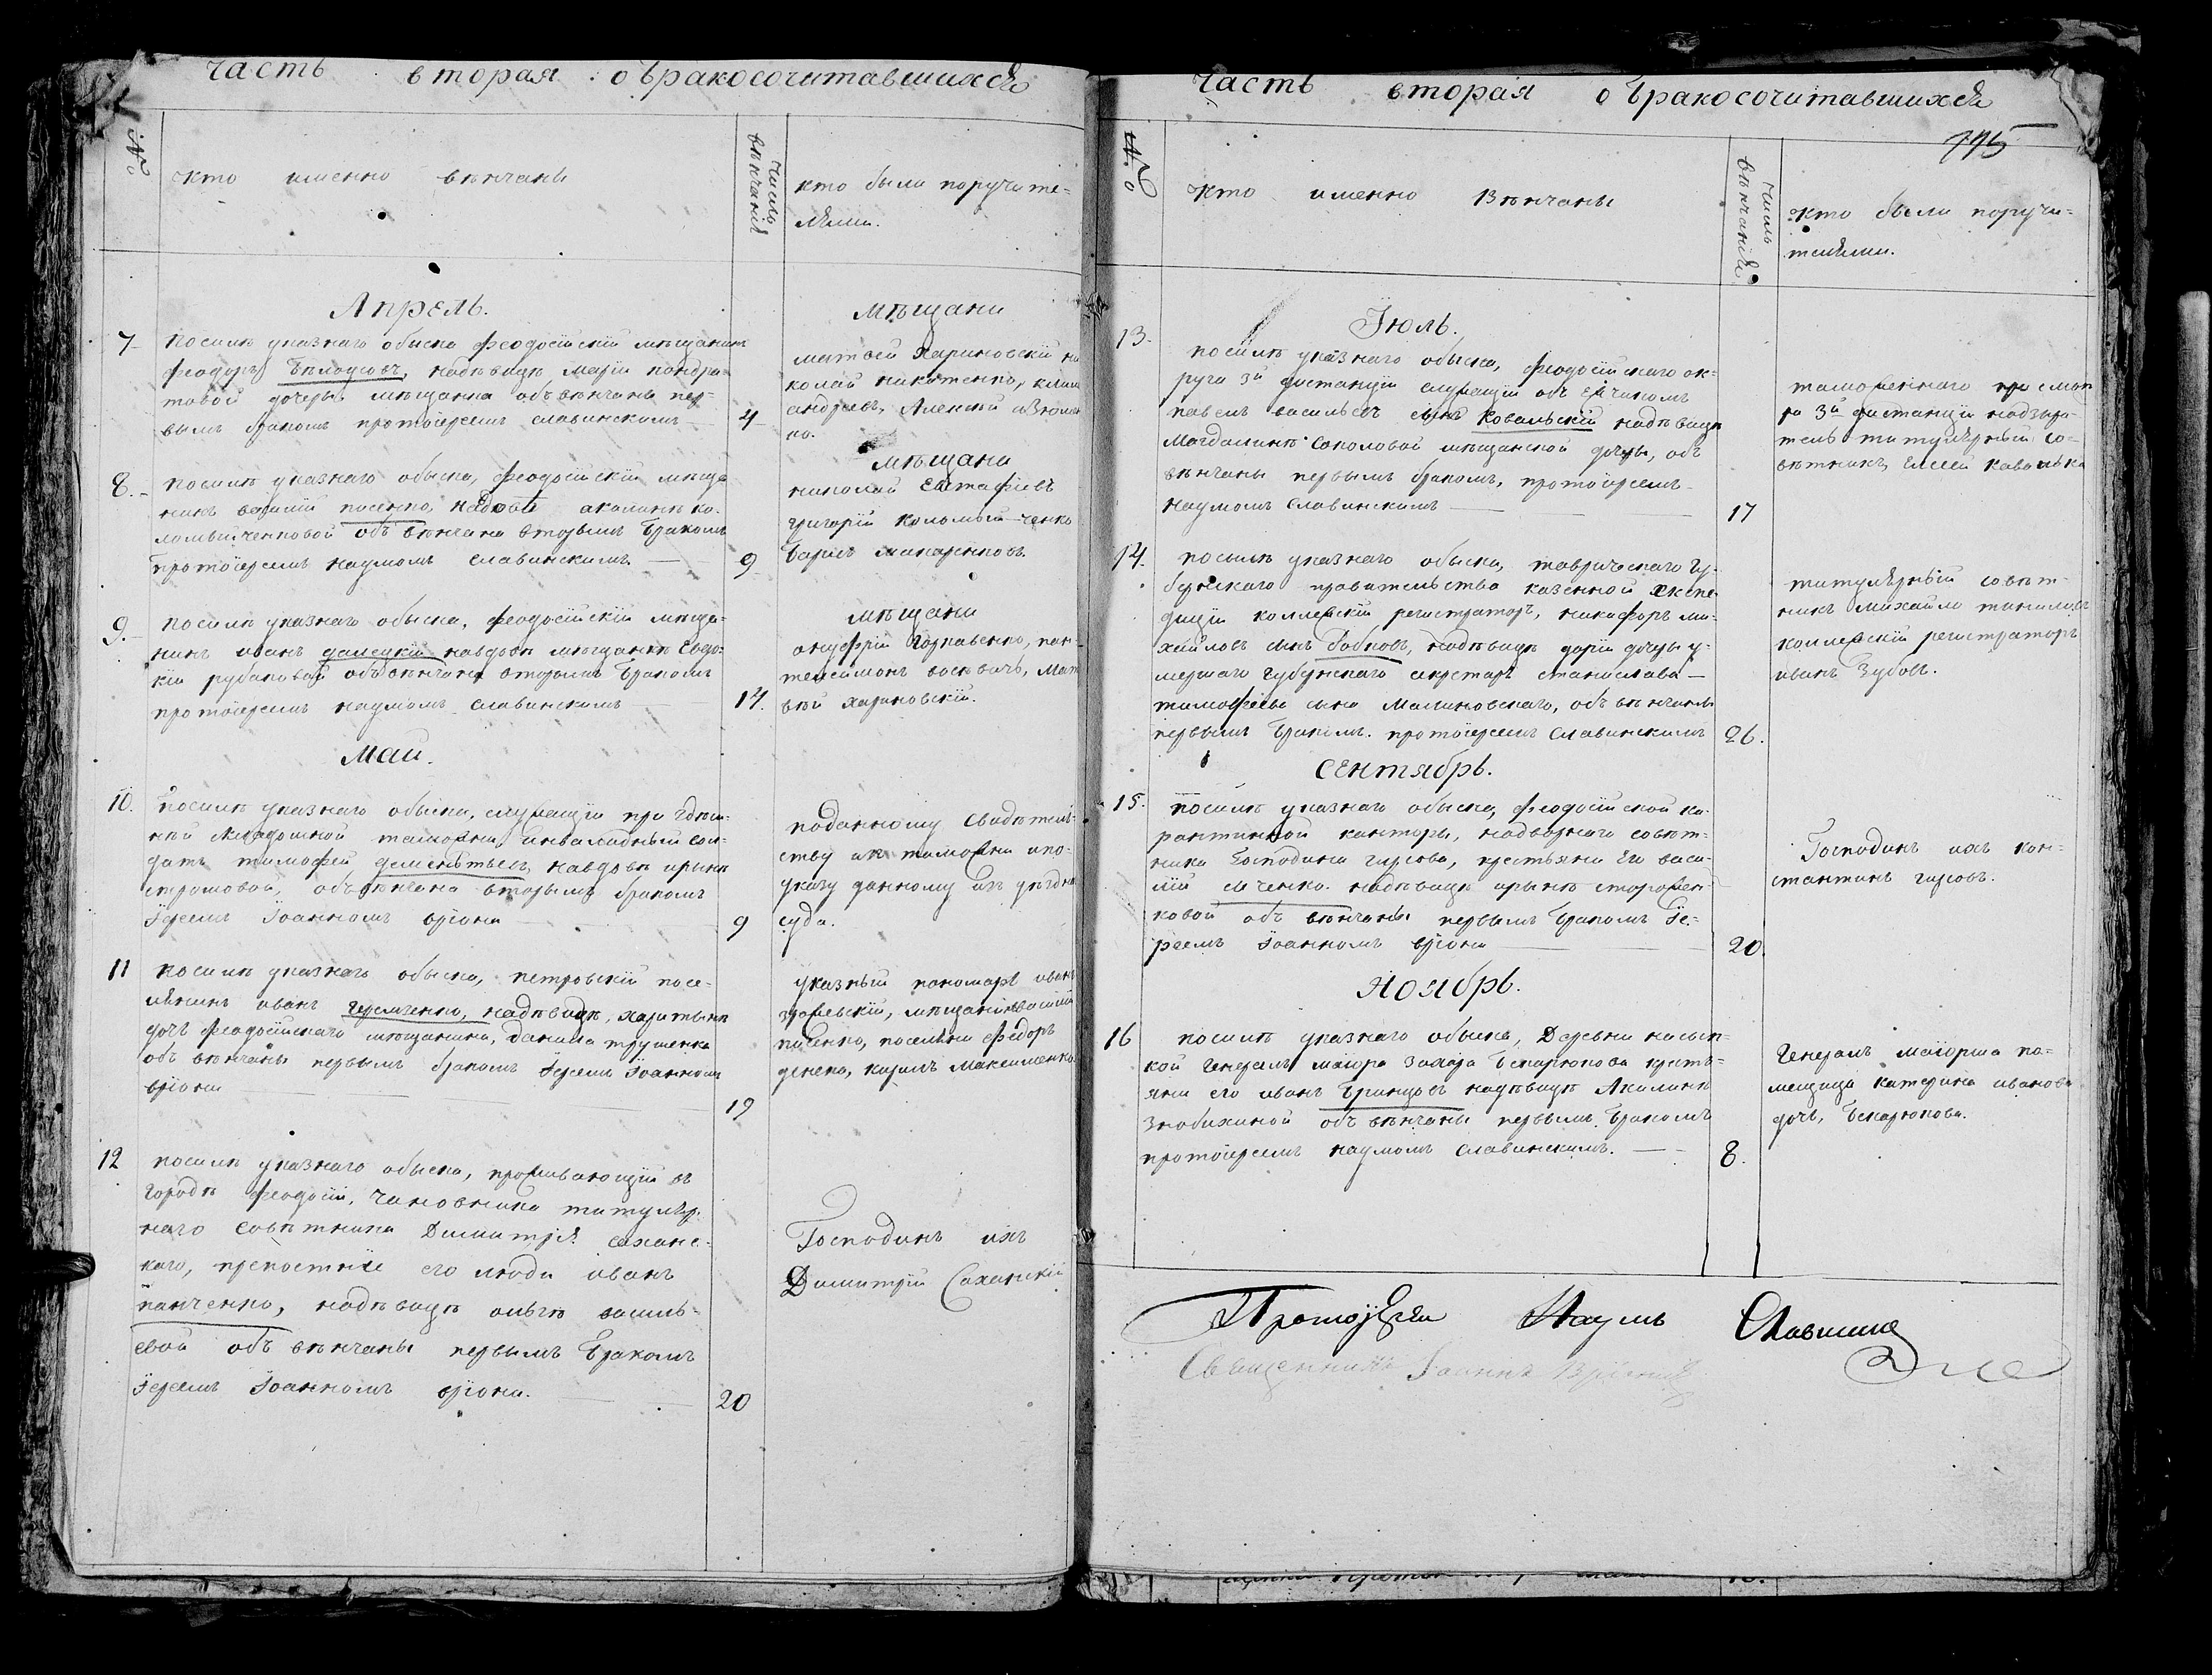 часть вторая о бракосочитавшихся
№
кто именно вѣнчаны
число вѣнчанія
кто были поручите-
лями.
Апрель.
7
посилѣ указнаго обыска феодосійскій мѣщанинъ
феодуръ Бѣлоусовъ, надѣвицѣ маріи кондра-
товой дочеры мѣщанина объ вѣнчаны пер-
вымъ бракомъ протоіереемъ славинскимъ
4
мѣщани
матвей Хариновскій ни
колай никитенко, клим
андреевъ, Алексій
но.
8.
посилѣ указнаго обыска, феодосійскій мѣща
нинъ василій посенко, надвове акилинѣ ко-
ломыйченковой объ вѣнчана вторымъ бракомъ
протоіереемъ наумомъ славинскимъ.
9
мѣщани
николай Евстафіевъ
григорій коломый-ченко
Барисъ макаренковъ.
9.
посилѣ указнаго обыска, феодосійскій мѣща-
нинъ иванъ далецкій навдовѣ мѣщанкѣ Евдо-
кіи рубановай объ вѣнчана вторымъ бракомъ
протоіереемъ наумомъ славинскимъ
14.
мѣщани
онуфрій Горкавенко, пан-
телеймонъ васьвичъ, мат
вѣй хариновскій.
Маи.
10.
посилѣ указнаго обыска, служащій при здѣш-
ней складошной таможни, инвалидный сол-
датъ тимофей деменьтьевъ, навдовѣ ирынѣ
строшовой, объ вѣнчана вторымъ бракомъ
Іереемъ Іоанномъ вріони
9
поданному свидѣтель-
ству ис таможни ипо-
указу данному изъ уѣздна
суда.
11
посилѣ указнаго обыска, петровскій посе-
лянинъ иванъ геремченко, надѣвицѣ, харитынѣ
дочь феодосійскаго мѣщанина, данила трушенка
объ вѣнчаны первымъ бракомъ Іереемъ Іоанномъ
вріони
19
указный пономаръ иванъ
зражевскій, мѣщанинъ василій
писенко, поселяни федоръ
денека, кирилъ максименко.
12
посилѣ указнаго обыска, проживающій въ
городѣ феодосіи, чиновника титуляр-
наго совѣтника Димитрія сахано-
каго, крепостніе его люди иванъ
панченко, надѣвицѣ ольгѣ василь-
евой объ вѣнчаны первымъ бракомъ
Іереемъ Іоанномъ вріони.
20
Господинъ ихъ
Димитрій Саханскій
часть вторая о бракосочитавшихся
115
№
кто именно вѣнчаны
число вѣнчанія
кто были поручи-
телями.
Іюль.
13.
посилѣ указнаго обыска, феодосійскаго ок-
руга 3й дистанціи служащій объ ездчикомъ
павелъ васильевъ сынъ Ковальскій надѣвицѣ
Магдалинѣ Соколовой мѣщанской дочеры, объ
вѣнчаны первымъ бракомъ, протоіереемъ
наумомъ славинскимъ
17
таможеннаго присмот
ра 3й дистанціи надзыра-
тель титулярный со-
вѣтникъ, Елисей
14.
посилѣ указнаго обыска, таврическаго гу-
бернскаго правительства казенной експе
диціи коллежскій регистраторъ, никифоръ ми-
хайловъ сынъ бобковъ, надѣвицѣ даріи дочеры у-
мершаго губернскаго секретаря станислава
тимофѣева сына Малиновскаго, объ вѣнчаны
первымъ бракомъ. протоіереемъ славинскимъ
26.
титулярный совѣт-
никъ михайло
коллежскій регистраторъ
иванъ Зубовъ.
Сентябрь.
15.
посилѣ указнаго обыска, феодосійской ка-
рантинной канторы, надворнаго совѣт-
ника Господина гирсова, крестьяни Его васи-
лій сѣченко. надѣвицѣ ирынѣ сторожен-
ковой объ вѣнчаны первымъ бракомъ Іе-
реемъ Іоанномъ вріони
20.
Господинъ ихъ кон-
стантинъ гирсовъ.
Ноябрь.
16
посилѣ указнаго обыска, Деревни насып-
кой генералъ маіора захара Бекарюкова крестъ-
яни его иванъ Бринцовъ надѣвицѣ Акилинѣ
Знобихиной объ вѣнчаны первымъ Бракомъ
протоіереемъ наумомъ славинскимъ.
8.
Генералъ маіорша по-
мещица катерина иванова
дочь, Бекарюкова.
Протоіерей Наумъ Славинск
Священникъ Іоаннъ Вріони